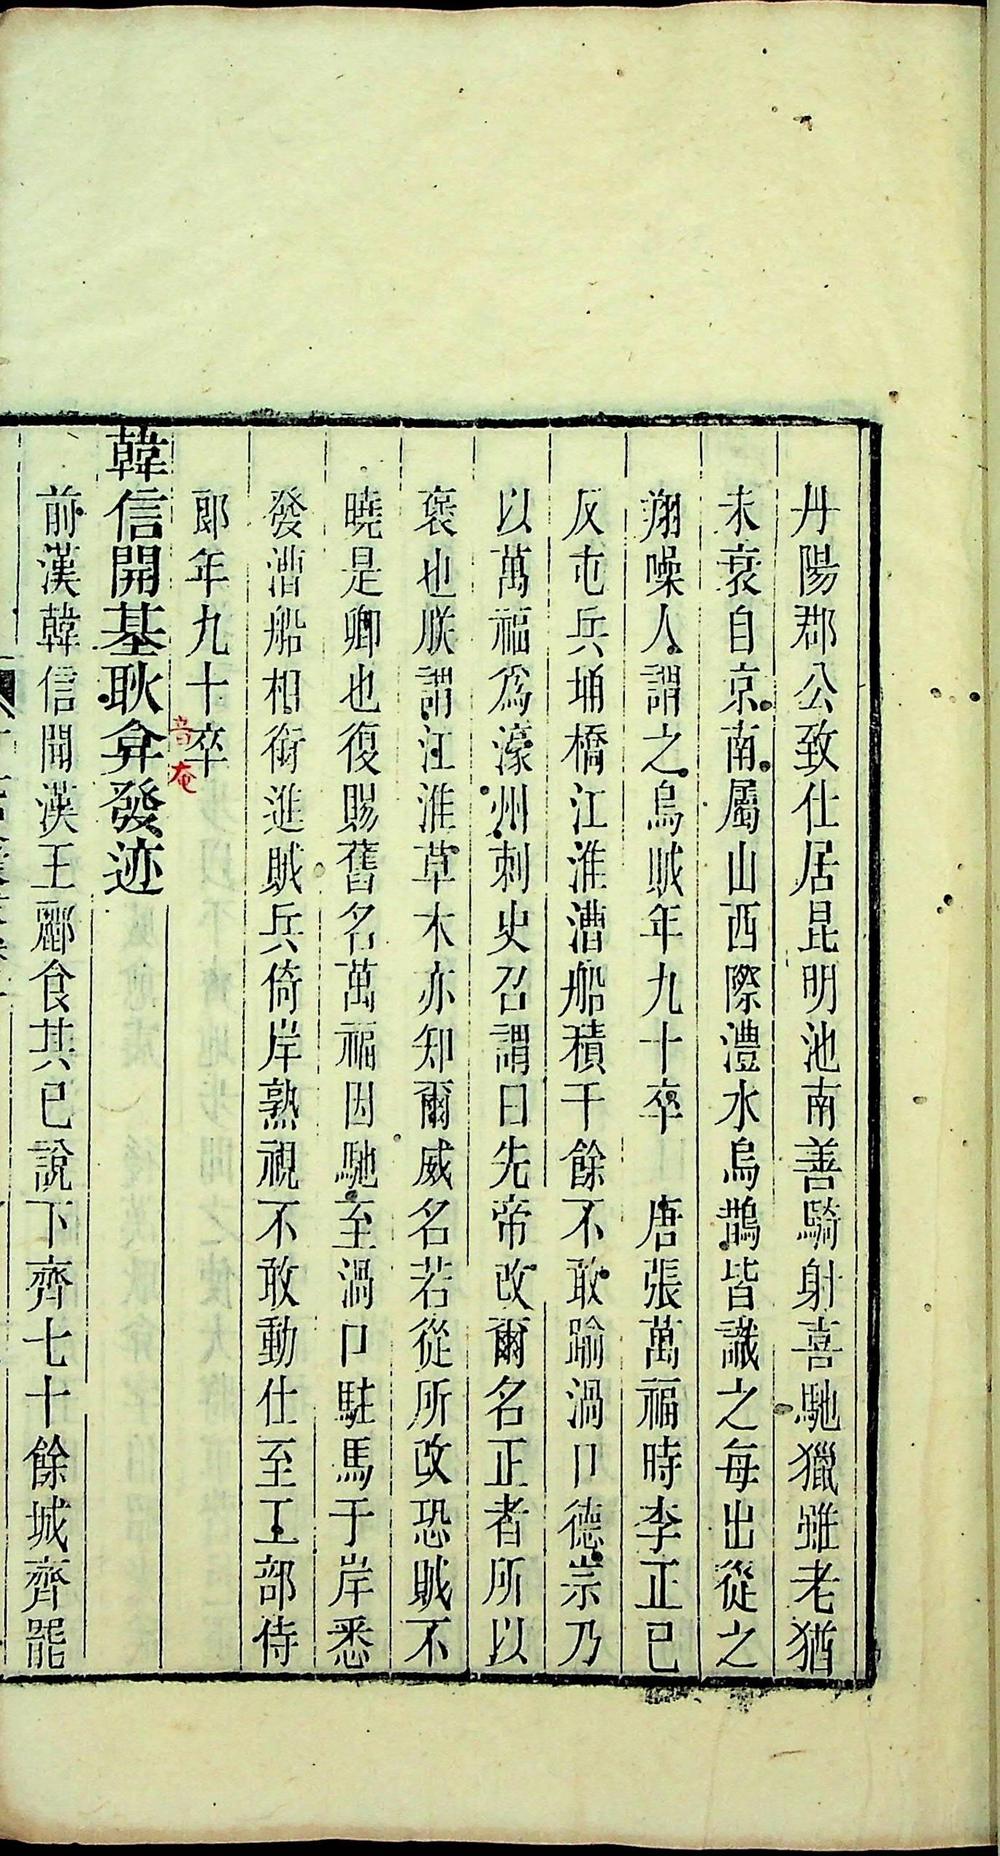 丹陽郡公致仕居昆明池南善騎射喜馳獵雖老猶
未衰自京南屬山西際澧水烏鵲皆識之每出從之
翔噪人謂之烏賊年九十卒　唐張萬福時李正已
反屯兵埇橋江淮漕船積千餘不敢踰渦口德宗乃
以萬福爲濠州刺史召謂曰先帝改爾名正者所以
褒也朕謂江淮草木亦知爾威名若從所改恐賊不
曉是卿也復賜舊名萬福因馳至渦口駐馬于岸悉
發漕船相銜進賊兵倚岸熟視不敢動仕至工部侍
郎年九十卒
韓信開基耿弇發迹
音奄
前漢韓信聞漢王酈食其已說下齊七十餘城齊罷